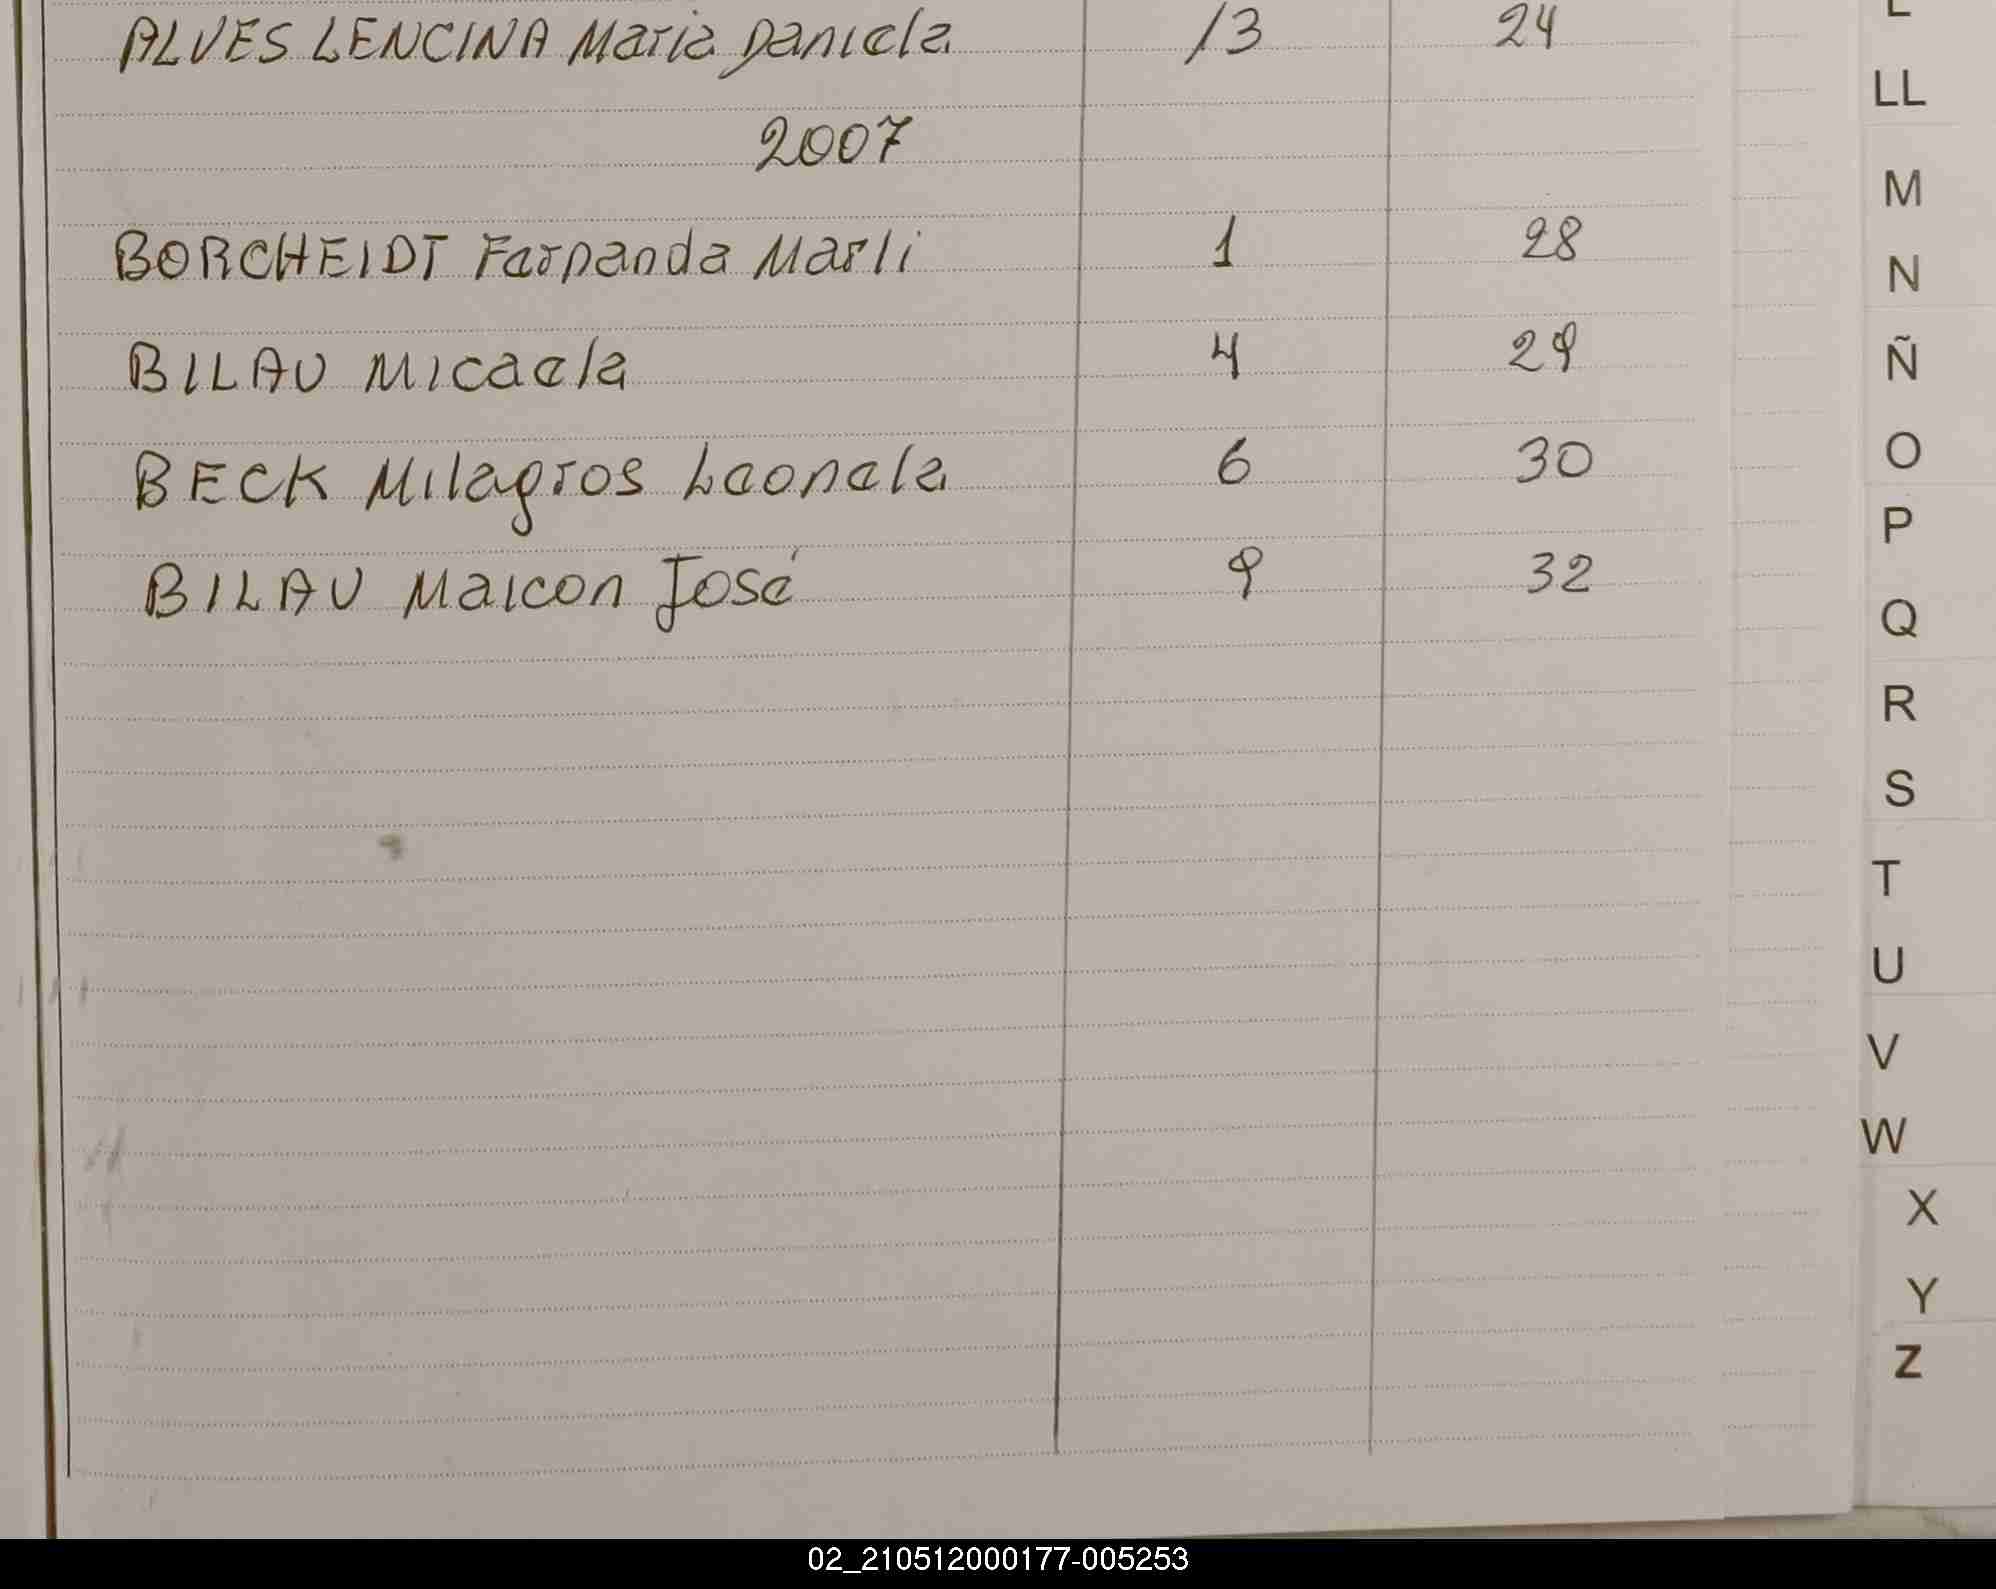 ALVES LENCINA Maria Daniela 13 24
2007
BORCHEIDT Fernanda Marli 1 28
BILAU Micaela 4 29
BECK Milagros Leonela 6 30
BILAU Maicon José 9 32
L
LL
M
N
Ñ
O
P
Q
R
S
T
U
V
W
X
Y
Z
02_210512000177-005253